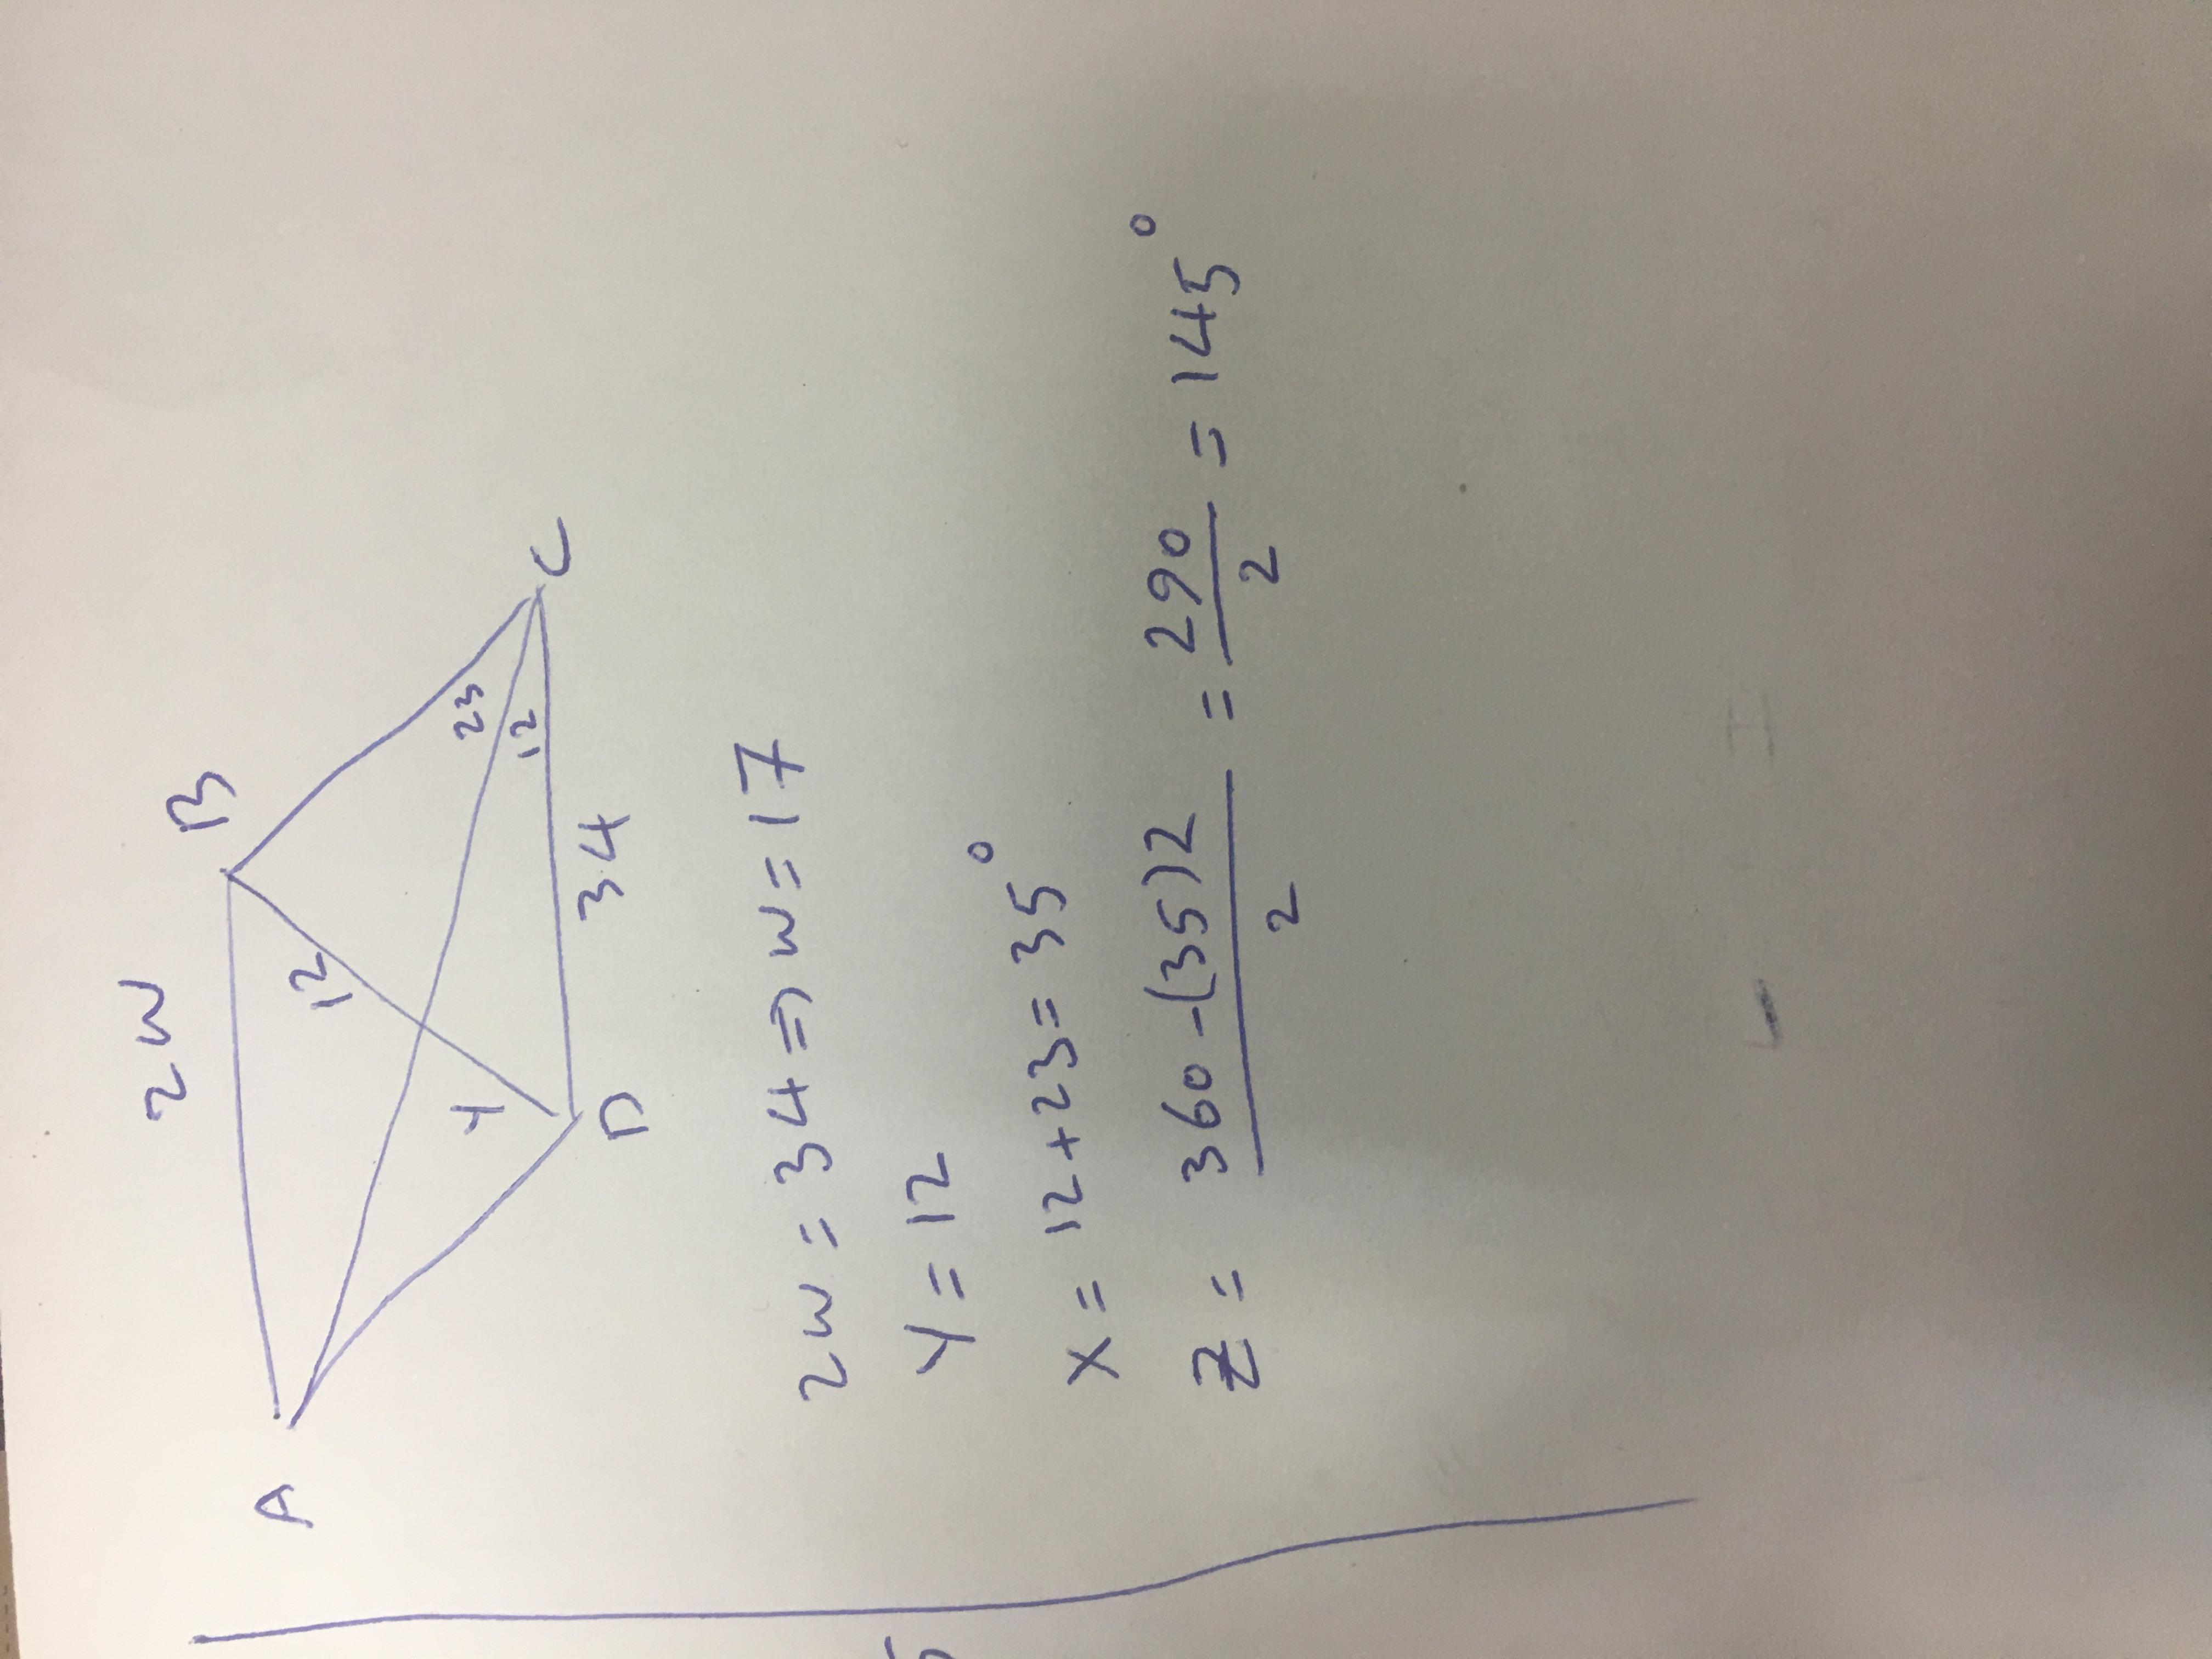 2W
A
B
12
23
12
Y
D
34
C
2W = 34 => W = 17
Y = 12
X = 12 + 23 = 35°
Z = 360 - (35)2 / 2 = 290 / 2 = 145°